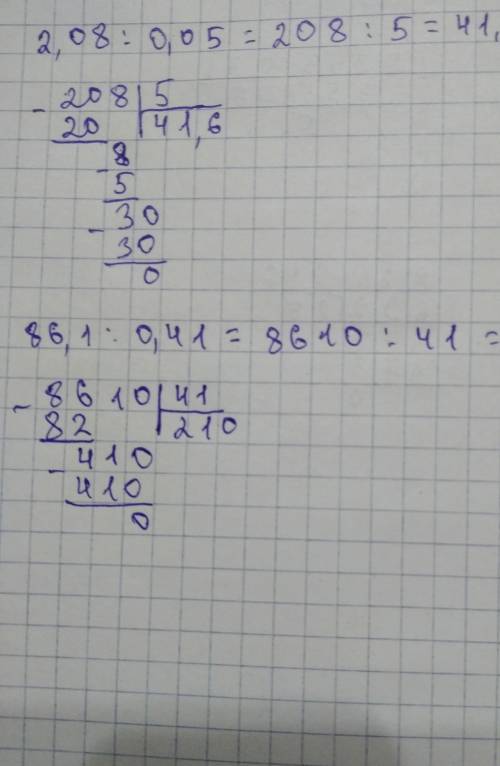 2,08 : 0,05 = 208 : 5 = 41,
- 208 | 5
20 | 41,6
- 8
5
- 30
30
0
86,1 : 0,41 = 8610 : 41 =
- 8610 | 41
82 | 210
- 410
410
0